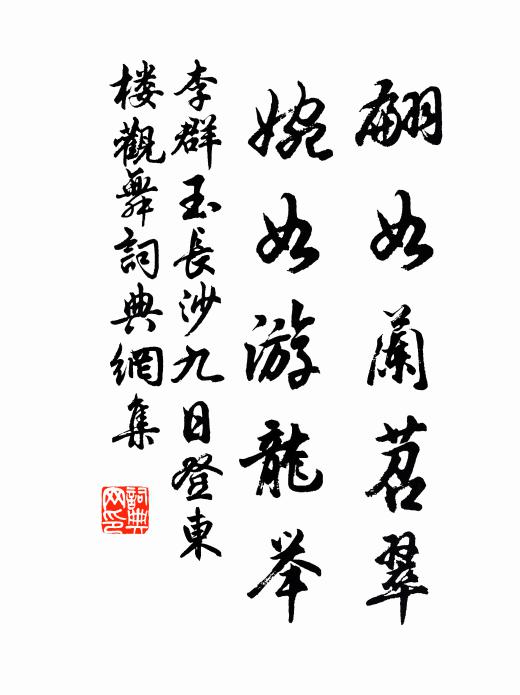 翩如蘭苕翠
婉如游龍举
李群玉長沙九日登東
楼觀舞詞典網集
詞典
网印